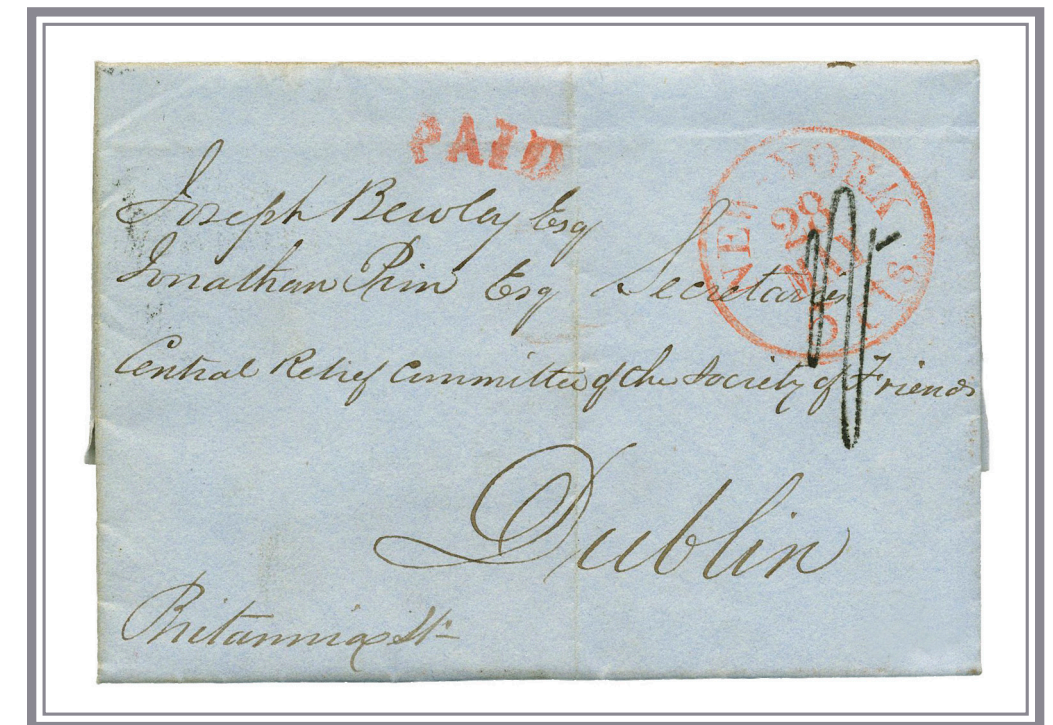 PAID
NEW-YORK
28
MAY
5 cts
Joseph Bewley Esq
Jonathan Pim Esq Secretaries
Central Relief Committee of the Society of Friends
Dublin
Britannia Str